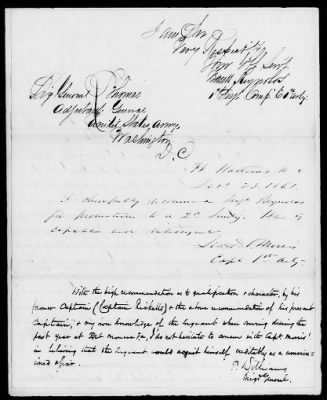 I am Sir
Very Respectfully
Your Obt Servt
Reynolds
1st Sergt Comp
Brig General L Thomas
Adjutant General
United States Army
Washington
D. C
Ft Hatteras N C
Dec 23. 1861.
I cheerfully recommend Sergt Reynolds
for promotion to a 2d Lieuty. He is
capable and intelligent.
Lewis O Morris
Capt 1st Arty.
With the high recommendation as to qualification & character, by his
former Captain (Captain Ricketts) & the above recommendation of his present
Captain, & my own knowledge of the Sergeant when serving during the
past year at Fort Monroe, Va, I do not hesitate to concur with Capt Morris'
in believing that the Sergeant would acquit himself creditably as a commis-
sioned officer.
Williams
Brig General.